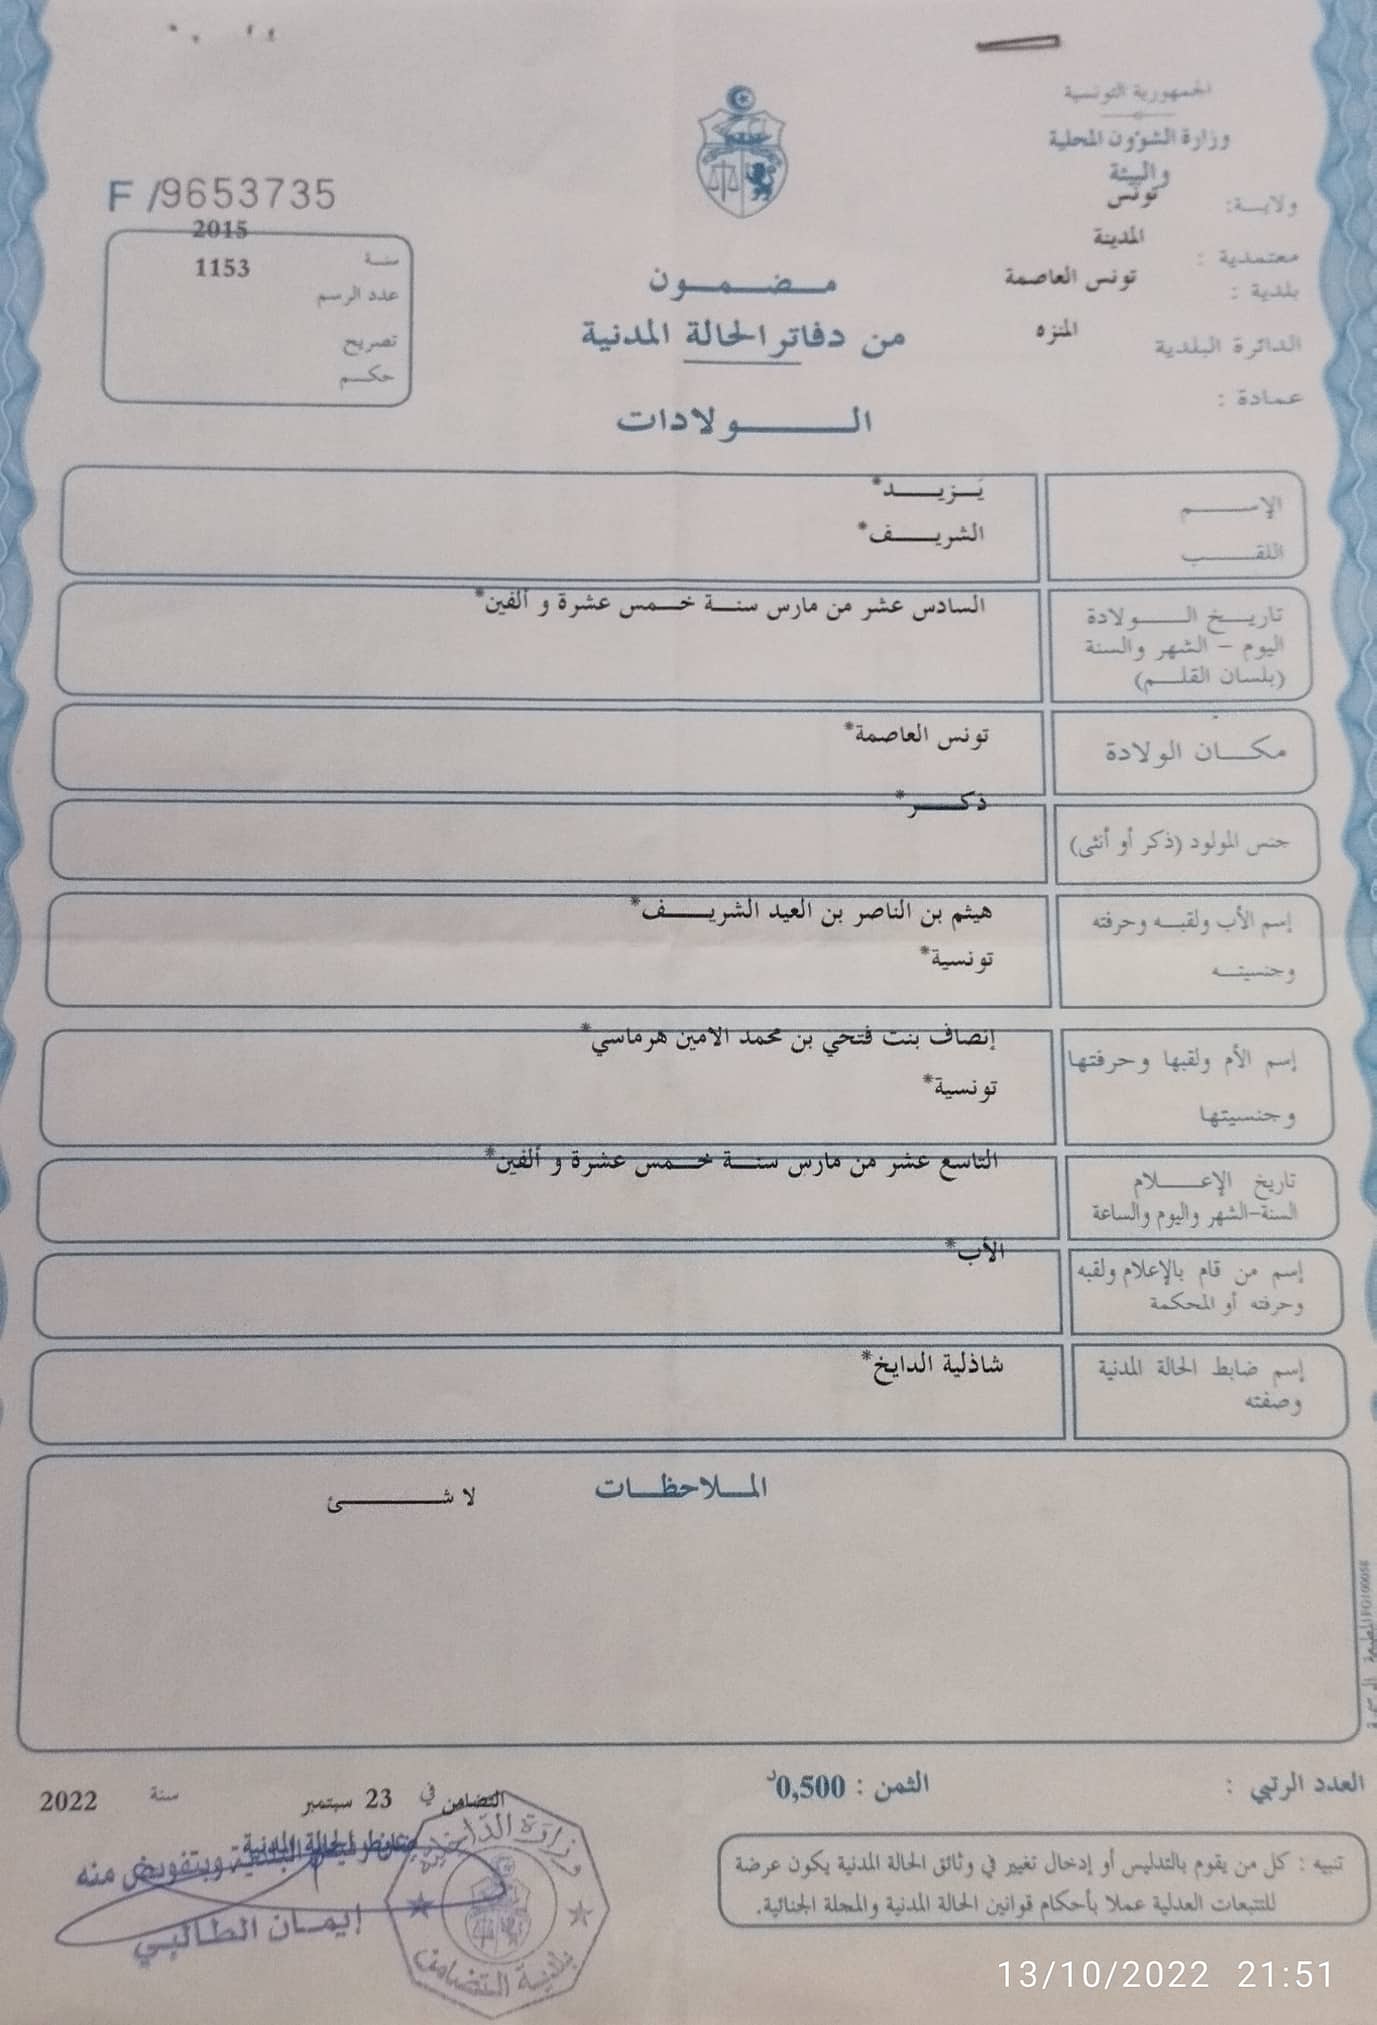 الجمهورية التونسية
وزارة الشؤون المحلية
والبيئة
ولاية: تونس
معتمدية : المدينة
بلدية : تونس العاصمة
الدائرة البلدية المنزه
عمادة :
F /9653735
سنة 2015
عدد الرسم 1153
تصريح
حكم
مضمون
من دفاتر الحالة المدنية
الولادات
الإسم يَزيد*
اللقب الشريف*
تاريخ الولادة السادس عشر من مارس سنة خمس عشرة و ألفين*
اليوم - الشهر والسنة
(بلسان القلم)
مكان الولادة تونس العاصمة*
جنس المولود (ذكر أو أنثى) ذكر*
إسم الأب ولقبه وحرفته هيثم بن الناصر بن العيد الشريف*
وجنسيته تونسية*
إسم الأم ولقبها وحرفتها إنصاف بنت فتحي بن محمد الامين هرماسي*
وجنسيتها تونسية*
تاريخ الإعلام التاسع عشر من مارس سنة خمس عشرة و ألفين*
السنة-الشهر واليوم والساعة
إسم من قام بالإعلام ولقبه الأب*
وحرفته أو المحكمة
إسم ضابط الحالة المدنية شاذلية الدايخ*
وصفته
الملاحظات
لا شئ
العدد الرتبي :
الثمن : 0,500د
التضامن في 23 سبتمبر سنة 2022
ضابط الحالة المدنية
وبتفويض منه
إيمان الطالبي
وزارة الداخلية
بلدية التضامن
تنبيه : كل من يقوم بالتدليس أو إدخال تغيير في وثائق الحالة المدنية يكون عرضة
للتتبعات العدلية عملا بأحكام قوانين الحالة المدنية والمجلة الجنائية.
13/10/2022 21:51